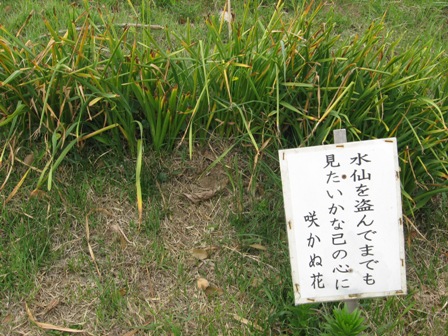 水仙を盗んでまでも
見たいかな己の心に
咲かぬ花